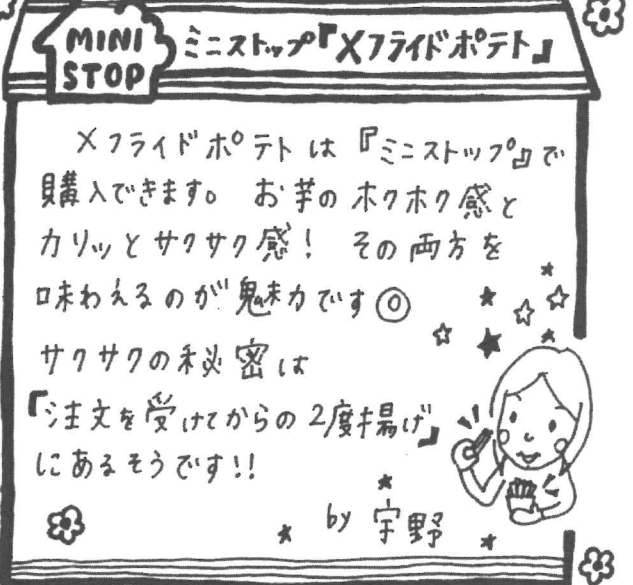 MINI STOP
ミニストップ『Xフライドポテト』
Xフライドポテトは『ミニストップ』で
購入できます。 お芋のホクホク感と
カリッとサクサク感! その両方を
味わえるのが魅力です◎
サクサクの秘密は
『注文を受けてからの2度揚げ』
にあるそうです!!
by 宇野